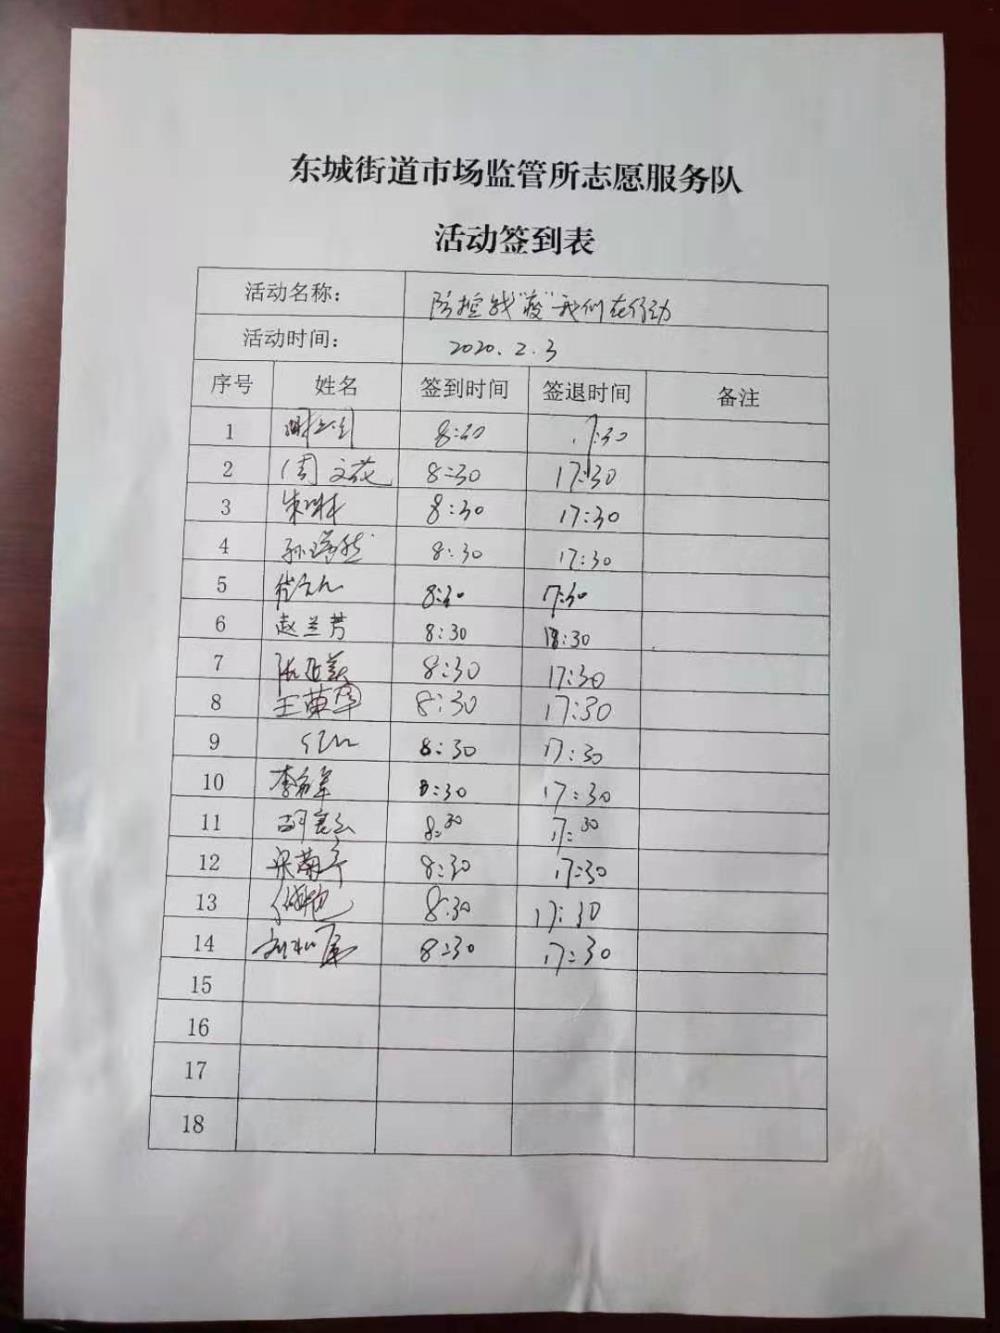 东城街道市场监管所志愿服务队
活动签到表
活动名称： 防控战“疫”我们在行动
活动时间： 2020.2.3
序号 姓名 签到时间 签退时间 备注
1 8:30 17:30
2 周文花 8:30 17:30
3 8:30 17:30
4 8:30 17:30
5 8:30 17:30
6 赵兰芳 8:30 18:30
7 8:30 17:30
8 8:30 17:30
9 8:30 17:30
10 8:30 17:30
11 8:30 17:30
12 8:30 17:30
13 8:30 17:30
14 8:30 17:30
15
16
17
18